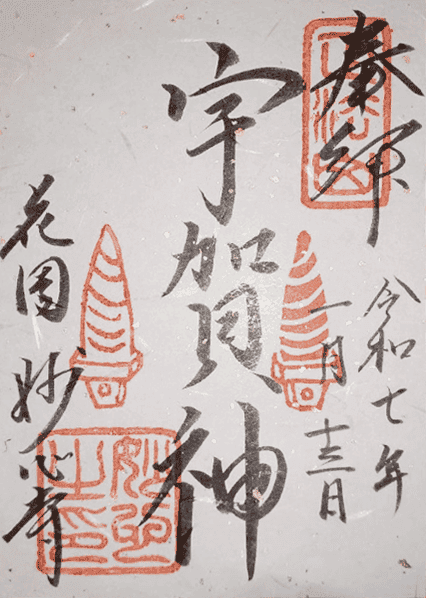 奉拝
令和七年
一月十三日
宇賀神
花園妙心寺